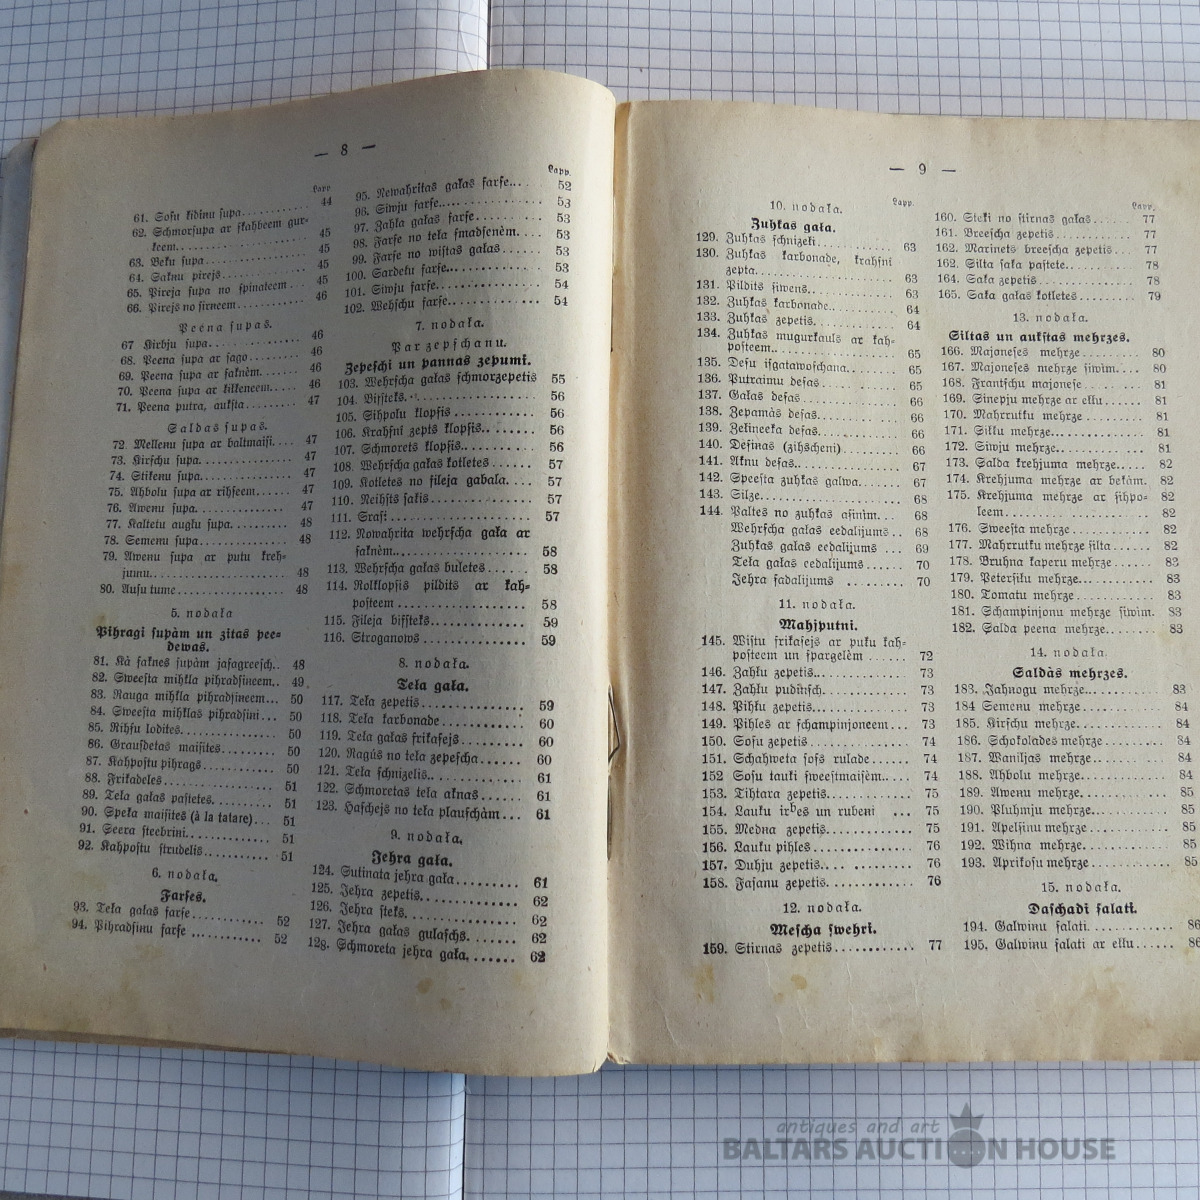 — 8 —
Lapp.
61. Sosu kidiņu supa.......... 44
62. Schmorsupa ar skahbeem gur-
keem.......... 45
63. Beku supa.......... 45
64. Sakņu pirejs.......... 45
65. Pireja supa no spinateem.... 45
66. Pirejs no sirneem.......... 46
Peena supas.
67 Kirbju supa.......... 46
68. Peena supa ar sago.......... 46
69. Peena supa ar saknèm.... 46
70. Peena supa ar kilkeneem.... 46
71. Peena putra, auksta........ 47
Saldas supas.
72. Mellenu supa ar baltmaisi.... 47
73. Kirschu supa.......... 47
74. Stikenu supa.......... 47
75. Ahbolu supa ar rihseem...... 47
76. Awenu supa.......... 47
77. Kaltetu auglu supa.......... 48
78. Semenu supa.......... 48
79. Awenu supa ar putu kreh-
jumu.......... 48
80. Ausu tume.......... 48
5. nodala
Pihragi supàm un zitas pee-
dewas.
81. Kà saknes supàm jasagreesch.. 48
82. Sweesta mihkla pihradsineem.. 49
83. Rauga mihkla pihradsineem.... 50
84. Sweesta mihklas pihradsini... 50
85. Rihsu lodites.......... 50
86. Grausdetas maisites......... 50
87. Kahpostu pihrags.......... 50
88. Frikadeles.......... 51
89. Teła gałas pastetes.......... 51
90. Speka maisites (à la tatare)... 51
91. Seera steebrini.......... 51
92. Kahpostu strudelis.......... 51
6. nodała.
Farses.
93. Teła gałas farse.......... 52
94. Pihradsinu farse .......... 52
Lapp.
95. Newahritas gałas farse... 52
96. Siwju farse.......... 53
97. Jahla gałas farse.......... 53
98. Farse no teła smadsenèm.... 53
99. Farse no wistas gałas........ 53
100. Sardeku farse.......... 53
101. Siwju farse.......... 54
102. Wehschu farse.......... 54
7. nodała.
Par zepschanu.
Zepeschi un pannas zepumi.
103. Wehrscha gałas schmorzepetis 55
104. Bifsteks.......... 56
105. Sihpolu klopsis .......... 56
106. Krahsni zepts klopsis........ 56
107. Schmorets klopsis.......... 56
108. Wehrscha gałas kotletes...... 57
109. Kotletes no fileja gabala.... 57
110. Neihsts sakis.......... 57
111. Srasi.......... 57
112. Nowahrita wehrscha gała ar
saknèm.......... 58
113. Wehrscha gałas buletes...... 58
114. Rolklopsis pildits ar kah-
posteem .......... 58
115. Fileja bifsteks.......... 59
116. Stroganows .......... 59
8. nodała.
Teła gała.
117. Teła zepetis.......... 59
118. Teła karbonade.......... 60
119. Teła gałas frikasejs........ 60
120. Ragús no teła zepescha.... 60
121. Teła schnizelis.......... 61
122. Schmoretas teła aknas...... 61
123. Haschejs no teła plauschàm... 61
9. nodała.
Jehra gała.
124. Sutinata jehra gała......... 61
125. Jehra zepetis.......... 62
126. Jehra steks.......... 62
127. Jehra gałas gulaschs........ 62
128. Schmoreta jehra gała....... 62
— 9 —
10. nodała. Lapp.
Zuhkas gała.
129. Zuhkas schnizeli.......... 63
130. Zuhkas karbonade, krahsni
zepta.......... 63
131. Pildits siwens.......... 63
132. Zuhkas karbonade.......... 64
133. Zuhkas zepetis.......... 64
134. Zuhkas mugurkauls ar kah-
posteem.......... 65
135. Desu isgatawoschana........ 65
136. Putraimu desas.......... 65
137. Gałas desas.......... 66
138. Zepamàs desas.......... 66
139. Zekineeka desas.......... 66
140. Desinas (zihscheni).......... 66
141. Aknu desas.......... 67
142. Speesta zuhkas galwa........ 67
143. Silze.......... 68
144. Paltes no zuhkas asinim... 68
Wehrscha gałas eedalijums.. 68
Zuhkas gałas eedalijums.... 69
Teła gałas eedalijums...... 70
Jehra sadalijums ........ 70
11. nodała.
Mahjputni.
145. Wistu frikasejs ar puku kah-
posteem un spargelèm ...... 72
146. Zahlu zepetis.......... 73
147. Zahlu pudinsch.......... 73
148. Pihku zepetis.......... 73
149. Pihles ar schampinjoneem... 73
150. Sosu zepetis.......... 74
151. Schahweta soss rulade...... 74
152 Sosu tauki sweestmaisèm... 74
153. Tihtara zepetis.......... 75
154. Lauku irbes un rubeni ... 75
155. Medna zepetis.......... 75
156. Lauku pihles.......... 76
157. Duhju zepetis.......... 76
158. Fasanu zepetis.......... 76
12. nodała.
Mescha swehri.
159. Stirnas zepetis.......... 77
Lapp.
160. Steki no stirnas gałas...... 77
161. Breescha zepetis.......... 77
162. Marinets breescha zepetis... 77
162. Silta saka pastete.......... 78
164. Saka zepetis.......... 78
165. Saka gałas kotletes........ 79
13. nodała.
Siltas un aukstas mehrzes.
166. Majoneses mehrze.......... 80
167. Majoneses mehrze siwim.... 80
168. Frantschu majonese........ 81
169. Sinepju mehrze ar ellu..... 81
170. Mahrrutku mehrze ........ 81
171. Silku mehrze.......... 81
172. Siwju mehrze.......... 81
173. Salda krehjuma mehrze.... 82
174. Krehjuma mehrze ar bekàm. 82
175. Krehjuma mehrze ar sihpo-
leem.......... 82
176. Sweesta mehrze .......... 82
177. Mahrrutku mehrze silta..... 82
178. Bruhna kaperu mehrze..... 83
179. Petersilu mehrze.......... 83
180. Tomatu mehrze .......... 83
181. Schampinjonu mehrze siwim. 83
182. Salda peena mehrze........ 83
14. nodała.
Saldàs mehrzes.
183. Jahnogu mehrze.......... 83
184 Semenu mehrze.......... 84
185. Kirschu mehrze.......... 84
186. Schokolades mehrze........ 84
187. Waniljas mehrze.......... 84
188. Ahbolu mehrze.......... 84
189. Awenu mehrze.......... 85
190. Pluhmju mehrze.......... 85
191. Apelsinu mehrze.......... 85
192. Wihna mehrze.......... 85
193. Aprikosu mehrze.......... 85
15. nodała.
Daschadi salati.
194. Galwinu salati.......... 86
195. Galwinu salati ar ellu....... 86
antiques and art
BALTARS AUCTION HOUSE